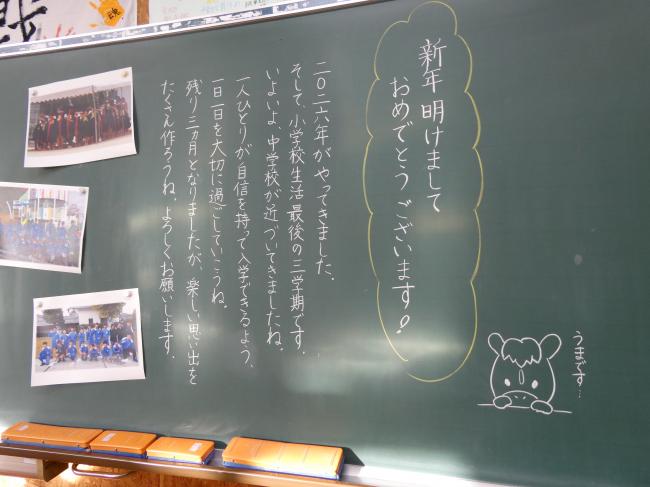 新年 明けまして
おめでとうございます!
二〇二六年がやってきました。
そして、小学校生活最後の三学期です。
いよいよ、中学校が近づいてきましたね。
一人ひとりが自信を持って入学できるよう、
一日一日を大切に過ごしていこうね。
残り三ヵ月となりましたが、楽しい思い出を
たくさん作ろうね。よろしくお願いします。
うまです…